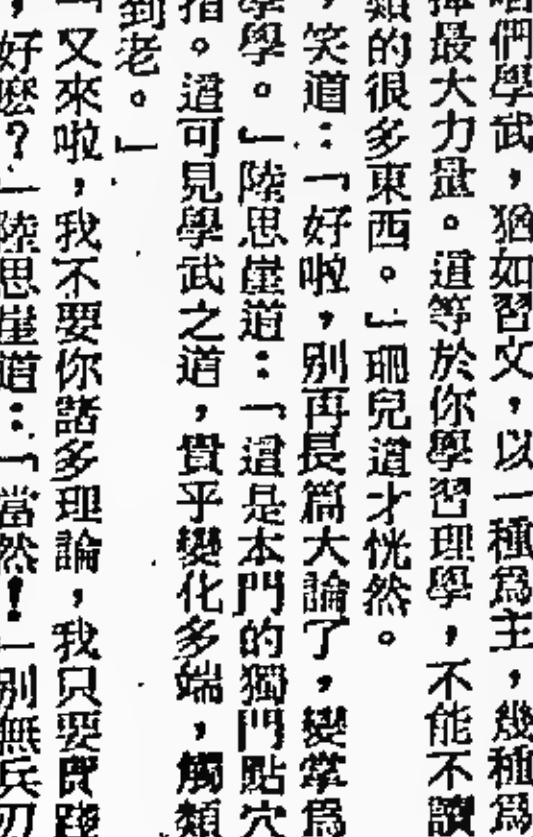 咱們學武，猶如習文，以一種爲主，幾種爲
揮最大力量。這等於你學習理學，不能不讀
類的很多東西。」珊兒這才恍然。
，笑道：「好啦，別再長篇大論了，變掌爲
學。」陸思崖道：「這是本門的獨門點穴
指。這可見學武之道，貴乎變化多端，觸類
到老。」
「又來啦，我不要你諸多理論，我只要實踐
，好麽？」陸思崖道：「當然！」別無兵刃